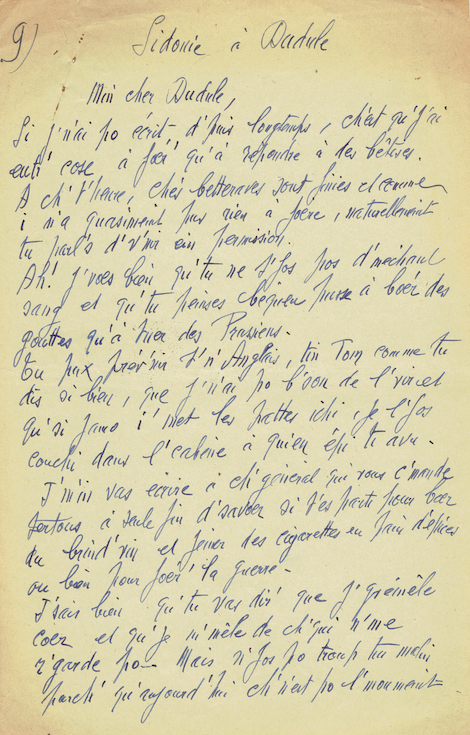 9)
Sidonie à Dudule
Min cher Dudule,
Si j'n'ai po écrit d'puis longtemps, ch'est qu'j'ai
eut' cose à foér' qu'à répondre à des bêtises.
A ch't'heure, chés betteraves sont finies et comme
i n'a quasiment pus rien à foère, naturellement
tu parl's d'v'nir ein permission.
Ah! j'voés bien qu'tu ne t'fos pos d'méchant
sang et qu'tu peinses béqueu pusse à boér' des
gouttes qu'à tuer des Prussiens.
Tu pux prév'nir t'n'Anglais, tin Tom comme tu
dis si bien, que j'n'ai po b'son de l'vir et
qu'si jamo i' met les pattes ichi, je l'fos
couchi dans l'cabène à quien épi ti avu.
J'm'in vas écrire à ch'général qui vous c'mande
tertous à seule fin d'savoér si t'es parti pour boér
du brind'vin et feumer des cigarettes en pain d'épices
ou bien pour foér' la guerre.
J'sais bien qu'tu vas dir' que j'grémèle
coér et qu'je m'mêle de ch'qui n'me
r'garde po. Mais n'fos po troup tin malin
parch' qu'aujourd'hui ch'n'est po l'moument